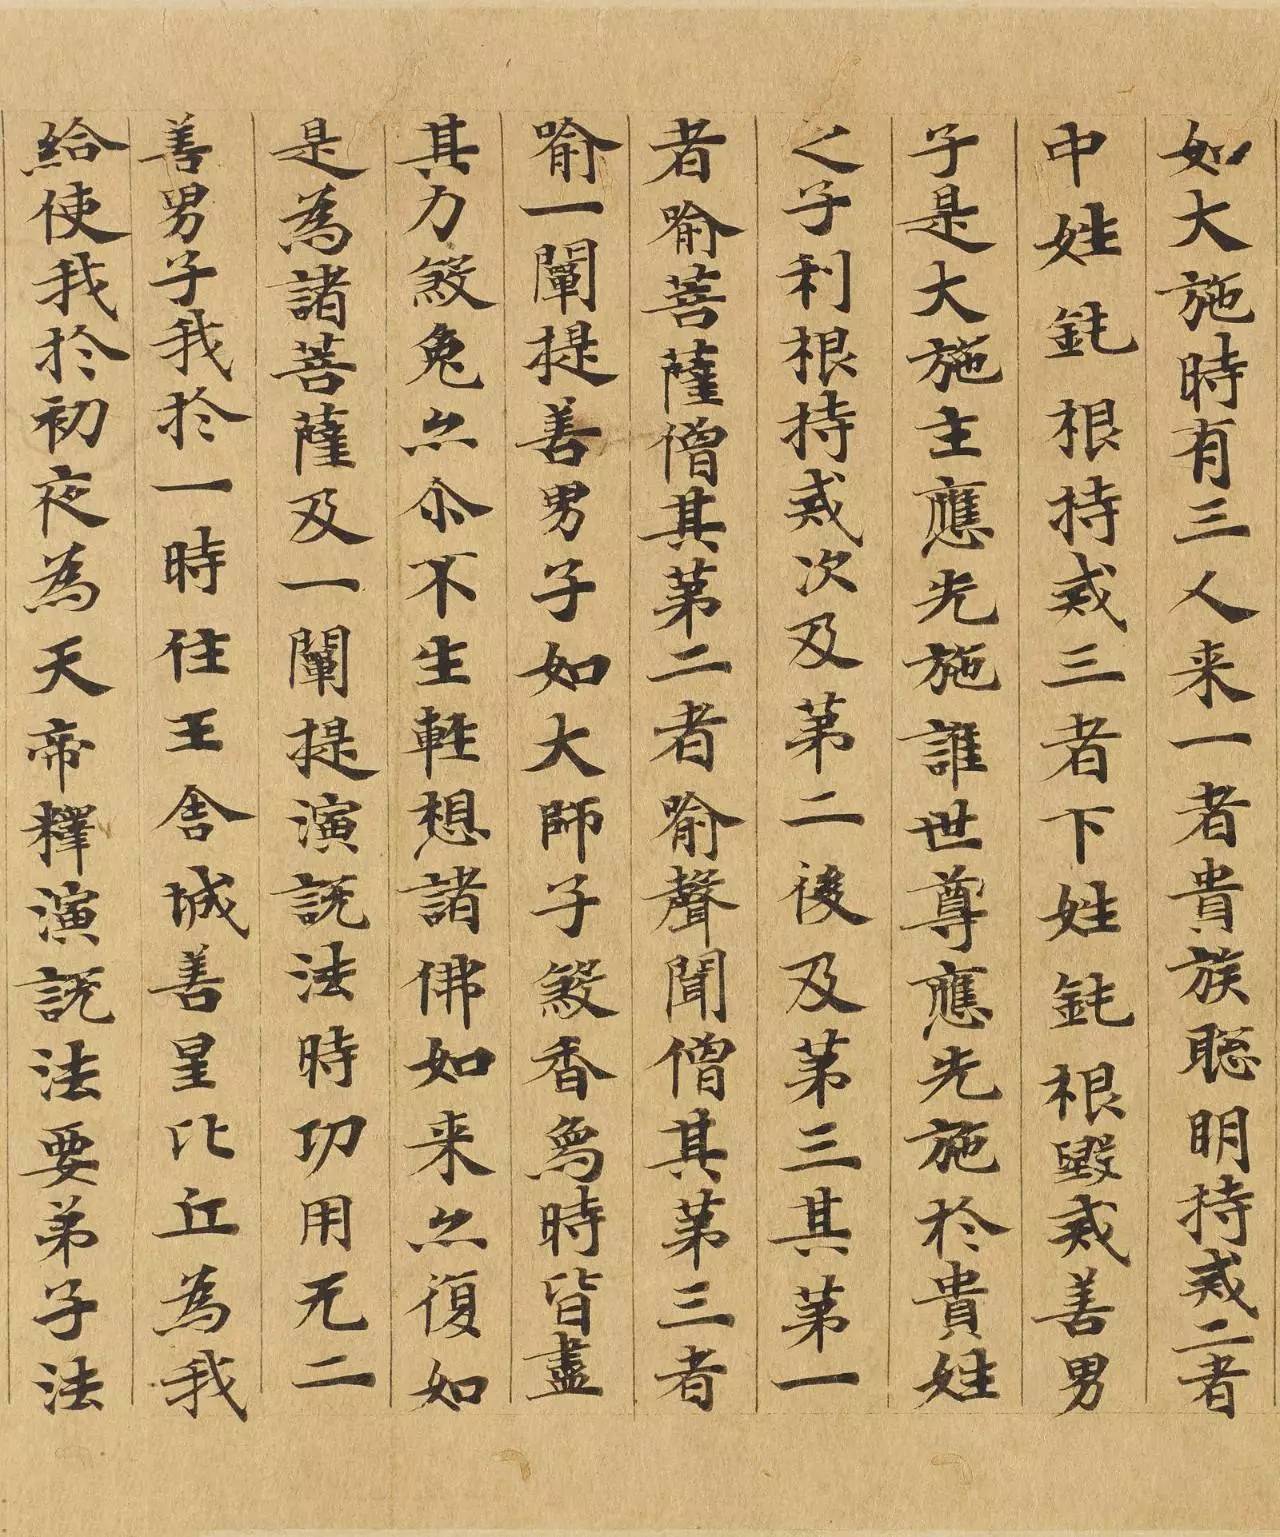 如大施時有三人来一者貴族聡明持戒二者
中姓鈍根持戒三者下姓鈍根毀戒善男
子是大施主應先施誰世尊應先施於貴姓
之子利根持戒次及第二後及第三其第一
者喻菩薩僧其第二者喻聲聞僧其第三者
喻一闡提善男子如大師子煞香象時皆盡
其力煞兔亦尒不生輕想諸佛如来亦復如
是為諸菩薩及一闡提演說法時功用无二
善男子我於一時住王舍城善星比丘為我
給使我於初夜為天帝釋演說法要弟子法